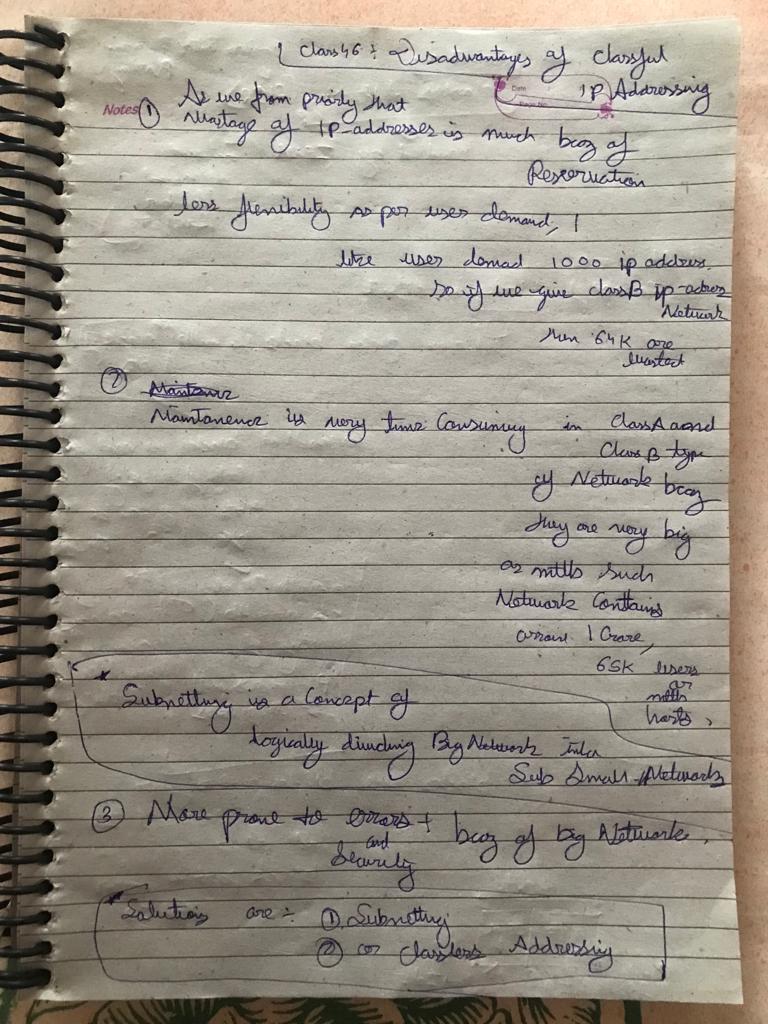 Class 46 :- Disadvantages of Classful
IP Addressing
Date
Page No.
Notes ① As we from priorly that
Wastage of IP-addresses is much bcoz of
Reservation
less flenibility as per user demand,
like user demad 1000 ip address.
So if we give classB ip-adress
Network
then 64K are
wasted
②
Maintanence is very time Consuming in classA aand
Class B type
of Network bcoz
they are very big
as mtlb such
Network Contains
arroun 1 Crore,
65K users
or
mtlb
hosts,
* Subnetting is a Concept of
logically dividing Big Network Into
Sub Small Networks
③ More prone to errors + bcoz of big Networks.
and
Security
* Solutions are :- ① Subnetting
② or classless Addressing